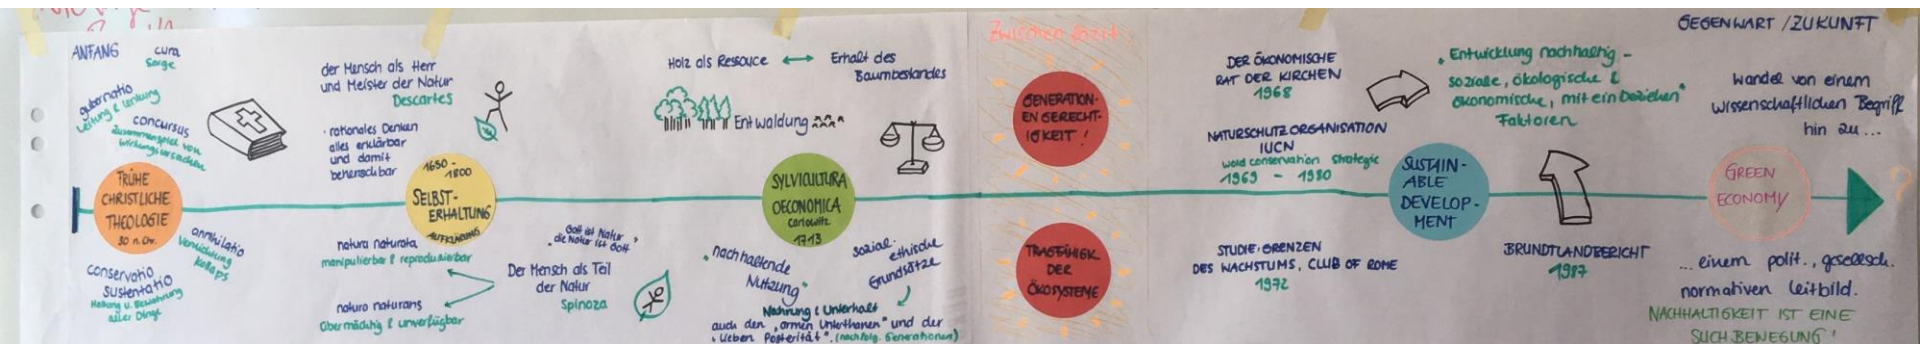 ANFANG
cura
Sorge
gubernatio
Leitung & Lenkung
concursus
Zusammenspiel von
Wirkungsursachen
FRÜHE
CHRISTLICHE
THEOLOGIE
30 n. Chr.
annihilatio
Vernichtung
Kollaps
conservatio
sustentatio
Haltung u. Bewahrung
aller Dinge
der Mensch als Herr
und Meister der Natur
Descartes
· rationales Denken
alles erklärbar
und damit
beherrschbar
1650 -
1800
SELBST-
ERHALTUNG
AUFKLÄRUNG
natura naturata
manipulierbar & reproduzierbar
natura naturans
übermächtig & unverfügbar
"Gott ist Natur,
die Natur ist Gott"
Der Mensch als Teil
der Natur
Spinoza
Holz als Ressouce ↔ Erhalt des
Baumbestandes
Entwaldung
SYLVICULTURA
OECONOMICA
Carlowitz
1713
"nachhaltende
Nutzung"
sozial-ethische
Grundsätze
Nahrung & Unterhalt
auch den "armen Unterthanen" und der
"lieben Posterität". (nachfolg. Generationen)
Zwischenfazit
GENERATION-
EN GERECHT-
IGKEIT!
TRAGFÄHIGK.
DER
ÖKOSYSTEME
DER ÖKONOMISCHE
RAT DER KIRCHEN
1968
NATURSCHUTZORGANISATION
IUCN
world conservation strategie
1969 - 1980
STUDIE: GRENZEN
DES WACHSTUMS, CLUB OF ROME
1972
"Entwicklung nachhaltig -
soziale, ökologische &
ökonomische, mit einbeziehen"
Faktoren
SUSTAIN-
ABLE
DEVELOP-
MENT
BRUNDTLANDBERICHT
1987
GEGENWART / ZUKUNFT
Wandel von einem
wissenschaftlichen Begriff
hin zu ...
GREEN
ECONOMY
?
... einem polit., gesellsch.
normativen Leitbild.
NACHHALTIGKEIT IST EINE
SUCHBEWEGUNG!